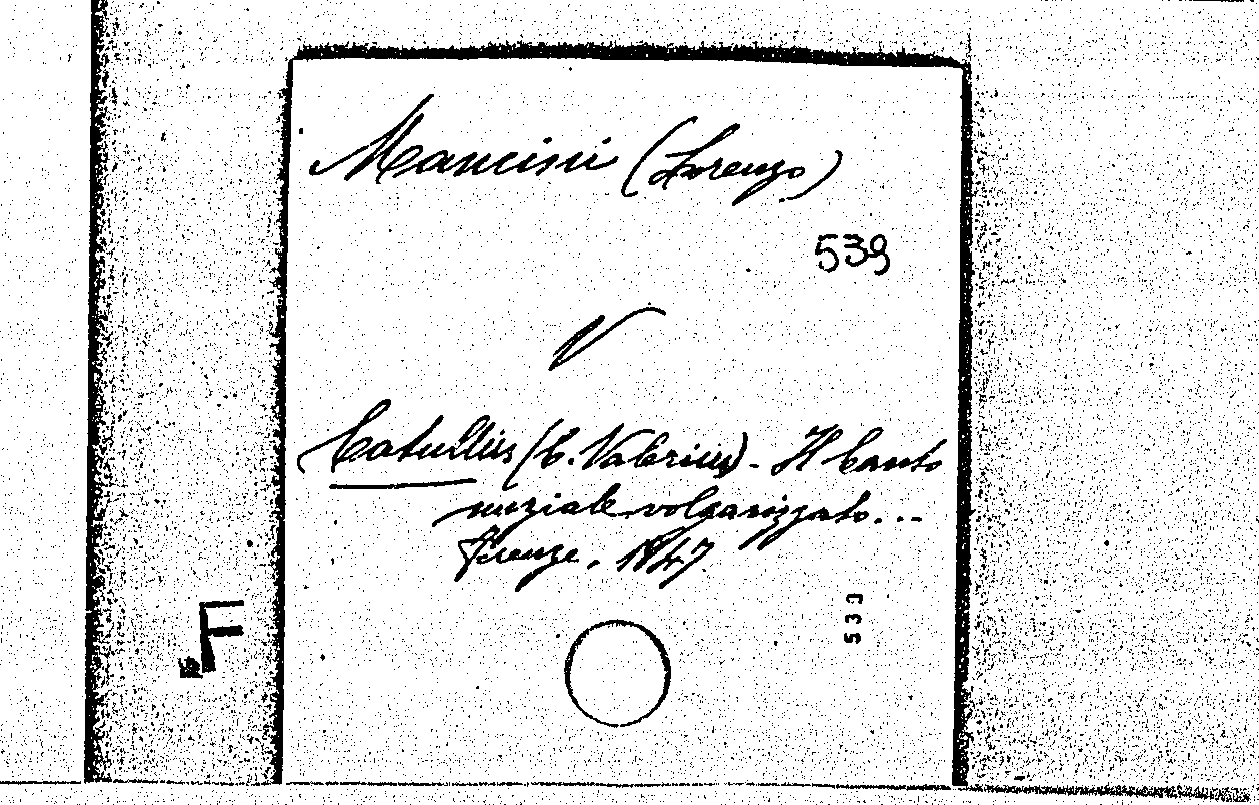 Mancini (Lorenzo)
539
V
Catullus (C. Valerius). - Il Canto
nuziale volgarizzato...
Firenze, 1847.
539
F